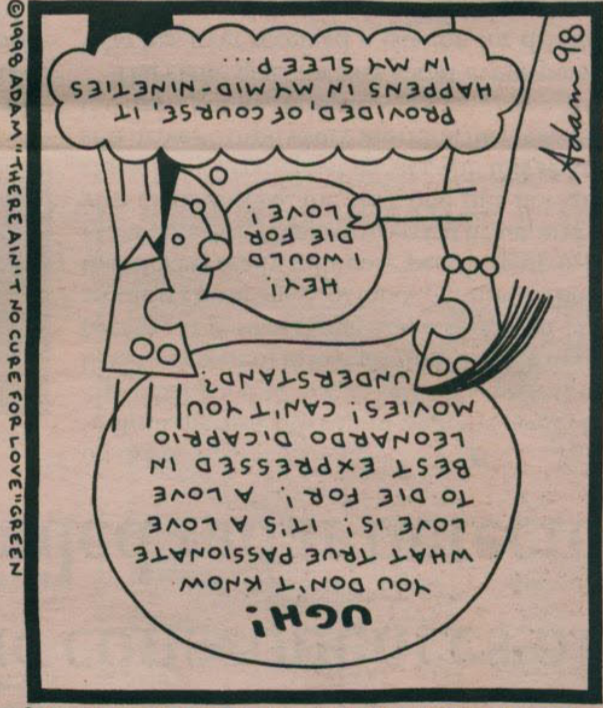 UGH!
YOU DON'T KNOW
WHAT TRUE PASSIONATE
LOVE IS! IT'S A LOVE
TO DIE FOR! A LOVE
BEST EXPRESSED IN
LEONARDO DICAPRIO
MOVIES! CAN'T YOU
UNDERSTAND?
HEY!
I WOULD
DIE FOR
LOVE!
PROVIDED, OF COURSE, IT
HAPPENS IN MY MID-NINETIES
IN MY SLEEP...
Adam 98
©1998 ADAM "THERE AIN'T NO CURE FOR LOVE" GREEN